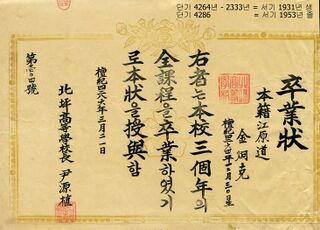 단기 4264년 - 2333년 = 서기 1931년 생
단기 4286 = 서기 1953년 졸
卒業狀
本籍 江原道
金烱克
右者는本校三個年의
全課程을卒業하였기
로本狀을授與함
檀紀四二八六年三月二一日
北坪高等學校長 尹源植